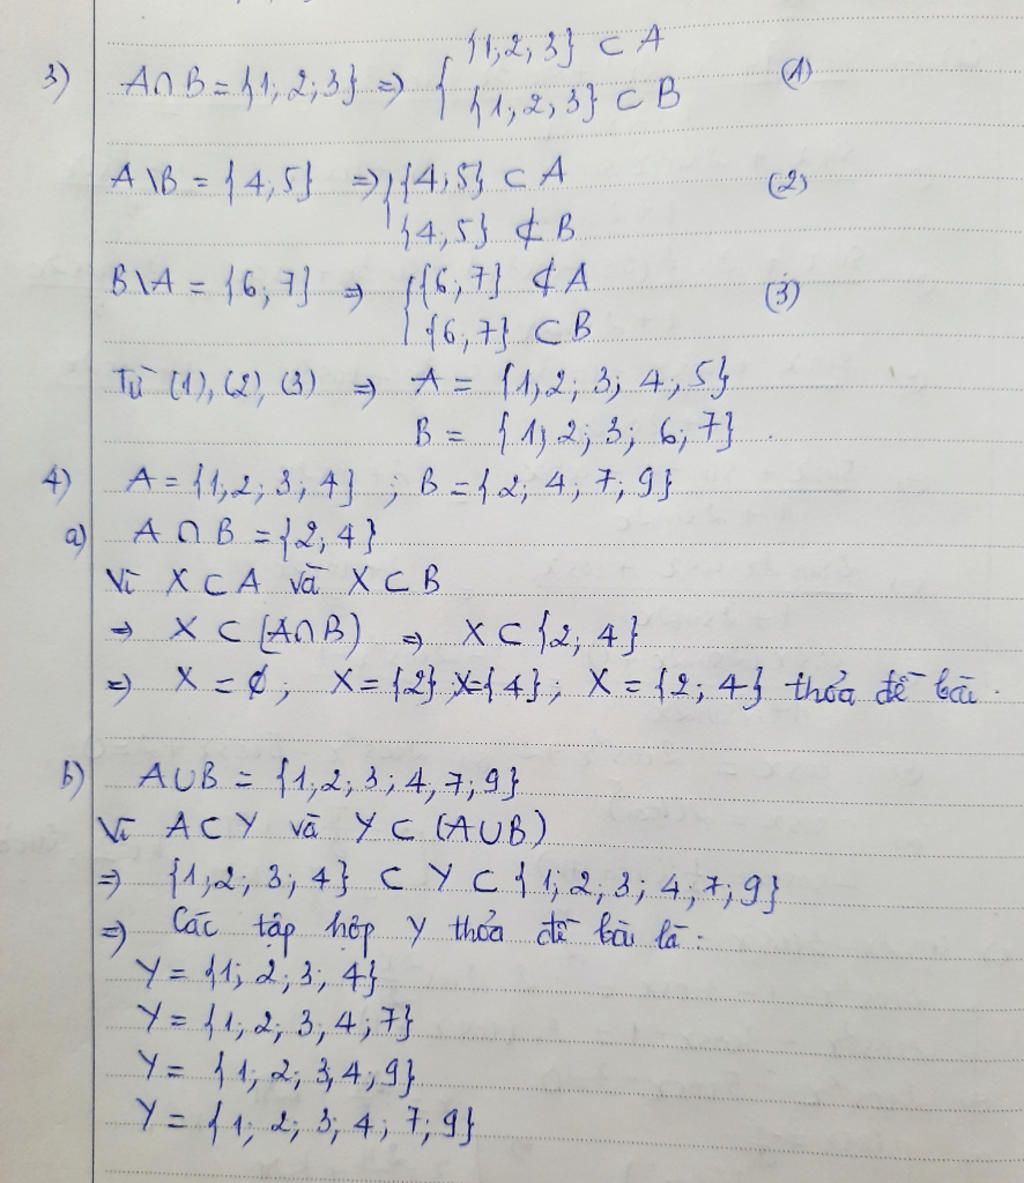 3) A∩B = {1; 2; 3} ⇒ { {1; 2; 3} ⊂ A (1)
{1; 2; 3} ⊂ B
A\B = {4; 5} ⇒ { {4; 5} ⊂ A (2)
{4; 5} ⊄ B
B\A = {6; 7} ⇒ { {6; 7} ⊄ A (3)
{6; 7} ⊂ B
Từ (1), (2), (3) ⇒ A = {1; 2; 3; 4; 5}
B = {1; 2; 3; 6; 7}.
4) A = {1; 2; 3; 4} ; B = {2; 4; 7; 9}
a) A ∩ B = {2; 4}
Vì X ⊂ A và X ⊂ B
⇒ X ⊂ (A∩B) ⇒ X ⊂ {2; 4}
⇒ X = ∅; X = {2}; X={4}; X = {2; 4} thỏa đề bài.
b) A∪B = {1; 2; 3; 4; 7; 9}
Vì A ⊂ Y và Y ⊂ (A∪B)
⇒ {1; 2; 3; 4} ⊂ Y ⊂ {1; 2; 3; 4; 7; 9}
⇒ Các tập hợp Y thỏa đề bài là:
Y = {1; 2; 3; 4}
Y = {1; 2; 3; 4; 7}
Y = {1; 2; 3; 4; 9}
Y = {1; 2; 3; 4; 7; 9}